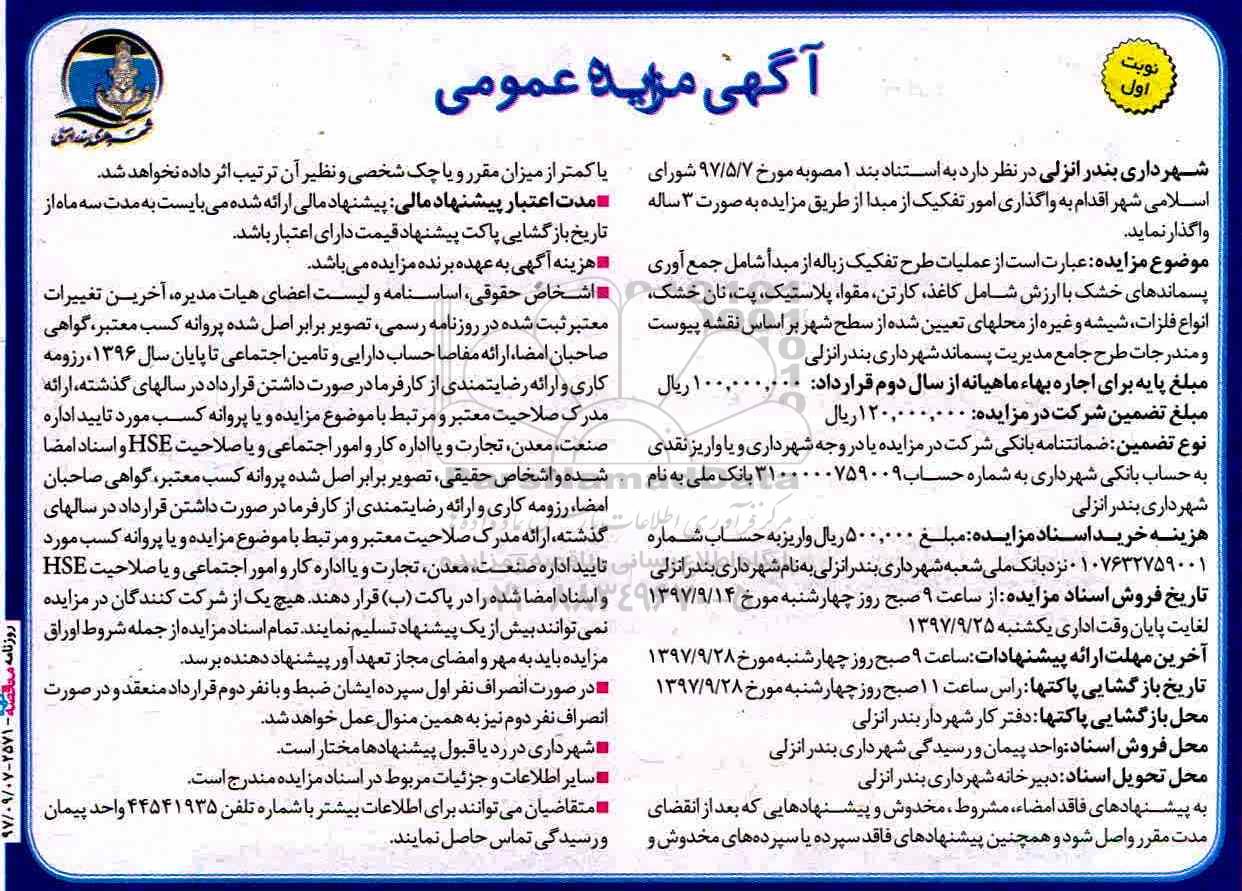 آگهی مزایده عمومی
نوبت
اول
شهرداری بندر انزلی
شهرداری بندر انزلی در نظر دارد به استناد بند ۱ مصوبه مورخ ۹۷/۵/۷ شورای
اسلامی شهر اقدام به واگذاری امور تفکیک از مبدا از طریق مزایده به صورت ۳ ساله
واگذار نماید.
موضوع مزایده: عبارت است از عملیات طرح تفکیک زباله از مبدأ شامل جمع آوری
پسماندهای خشک با ارزش شامل کاغذ، کارتن، مقوا، پلاستیک، پت، نان خشک،
انواع فلزات، شیشه و غیره از محلهای تعیین شده از سطح شهر بر اساس نقشه پیوست
و مندرجات طرح جامع مدیریت پسماند شهرداری بندر انزلی
مبلغ پایه برای اجاره بهاء ماهیانه از سال دوم قرارداد: ۱۰۰,۰۰۰,۰۰۰ ریال
مبلغ تضمین شرکت در مزایده: ۱۲۰,۰۰۰,۰۰۰ ریال
نوع تضمین: ضمانتنامه بانکی شرکت در مزایده یا در وجه شهرداری و یا واریز نقدی
به حساب بانکی شهرداری به شماره حساب ۳۱۰۰۰۰۰۷۵۹۰۰۹ بانک ملی به نام
شهرداری بندر انزلی
هزینه خرید اسناد مزایده: مبلغ ۵۰۰,۰۰۰ ریال واریز به حساب شماره
۰۱۰۷۶۳۲۷۵۹۰۰۱ نزد بانک ملی شعبه شهرداری بندر انزلی به نام شهرداری بندر انزلی
تاریخ فروش اسناد مزایده: از ساعت ۹ صبح روز چهارشنبه مورخ ۱۳۹۷/۹/۱۴
لغایت پایان وقت اداری یکشنبه ۱۳۹۷/۹/۲۵
آخرین مهلت ارائه پیشنهادات: ساعت ۹ صبح روز چهارشنبه مورخ ۱۳۹۷/۹/۲۸
تاریخ بازگشایی پاکتها: راس ساعت ۱۱ صبح روز چهارشنبه مورخ ۱۳۹۷/۹/۲۸
محل بازگشایی پاکتها: دفتر کار شهردار بندر انزلی
محل فروش اسناد: واحد پیمان و رسیدگی شهرداری بندر انزلی
محل تحویل اسناد: دبیرخانه شهرداری بندر انزلی
به پیشنهادهای فاقد امضاء، مشروط، مخدوش و پیشنهادهایی که بعد از انقضای
مدت مقرر واصل شود و همچنین پیشنهادهای فاقد سپرده یا سپرده‌های مخدوش و
یا کمتر از میزان مقرر و یا چک شخصی و نظیر آن ترتیب اثر داده نخواهد شد.
■ مدت اعتبار پیشنهاد مالی: پیشنهاد مالی ارائه شده می‌بایست به مدت سه ماه از
تاریخ بازگشایی پاکت پیشنهاد قیمت دارای اعتبار باشد.
■ هزینه آگهی به عهده برنده مزایده می‌باشد.
■ اشخاص حقوقی، اساسنامه و لیست اعضای هیات مدیره، آخرین تغییرات
معتبر ثبت شده در روزنامه رسمی، تصویر برابر اصل شده پروانه کسب معتبر، گواهی
صاحبان امضا، ارائه مفاصا حساب دارایی و تامین اجتماعی تا پایان سال ۱۳۹۶، رزومه
کاری و ارائه رضایتمندی از کارفرما در صورت داشتن قرارداد در سالهای گذشته، ارائه
مدرک صلاحیت معتبر و مرتبط با موضوع مزایده و یا پروانه کسب مورد تایید اداره
صنعت، معدن، تجارت و یا اداره کار و امور اجتماعی و یا صلاحیت HSE و اسناد امضا
شده و اشخاص حقیقی، تصویر برابر اصل شده پروانه کسب معتبر، گواهی صاحبان
امضاء، رزومه کاری و ارائه رضایتمندی از کارفرما در صورت داشتن قرارداد در سالهای
گذشته، ارائه مدرک صلاحیت معتبر و مرتبط با موضوع مزایده و یا پروانه کسب مورد
تایید اداره صنعت، معدن، تجارت و یا اداره کار و امور اجتماعی و یا صلاحیت HSE
و اسناد امضا شده را در پاکت (ب) قرار دهند. هیچ یک از شرکت کنندگان در مزایده
نمی‌توانند بیش از یک پیشنهاد تسلیم نمایند. تمام اسناد مزایده از جمله شروط اوراق
مزایده باید به مهر و امضای مجاز تعهدآور پیشنهاد دهنده برسد.
■ در صورت انصراف نفر اول سپرده ایشان ضبط و با نفر دوم قرارداد منعقد و در صورت
انصراف نفر دوم نیز به همین منوال عمل خواهد شد.
■ شهرداری در رد یا قبول پیشنهادها مختار است.
■ سایر اطلاعات و جزئیات مربوط در اسناد مزایده مندرج است.
■ متقاضیان می‌توانند برای اطلاعات بیشتر با شماره تلفن ۴۴۵۴۱۹۳۵ واحد پیمان
و رسیدگی تماس حاصل نمایند.
روزنامه مناقصه مزایده - ۲۵۷۱-۹۷/۰۹/۰۷
ParsNamadData